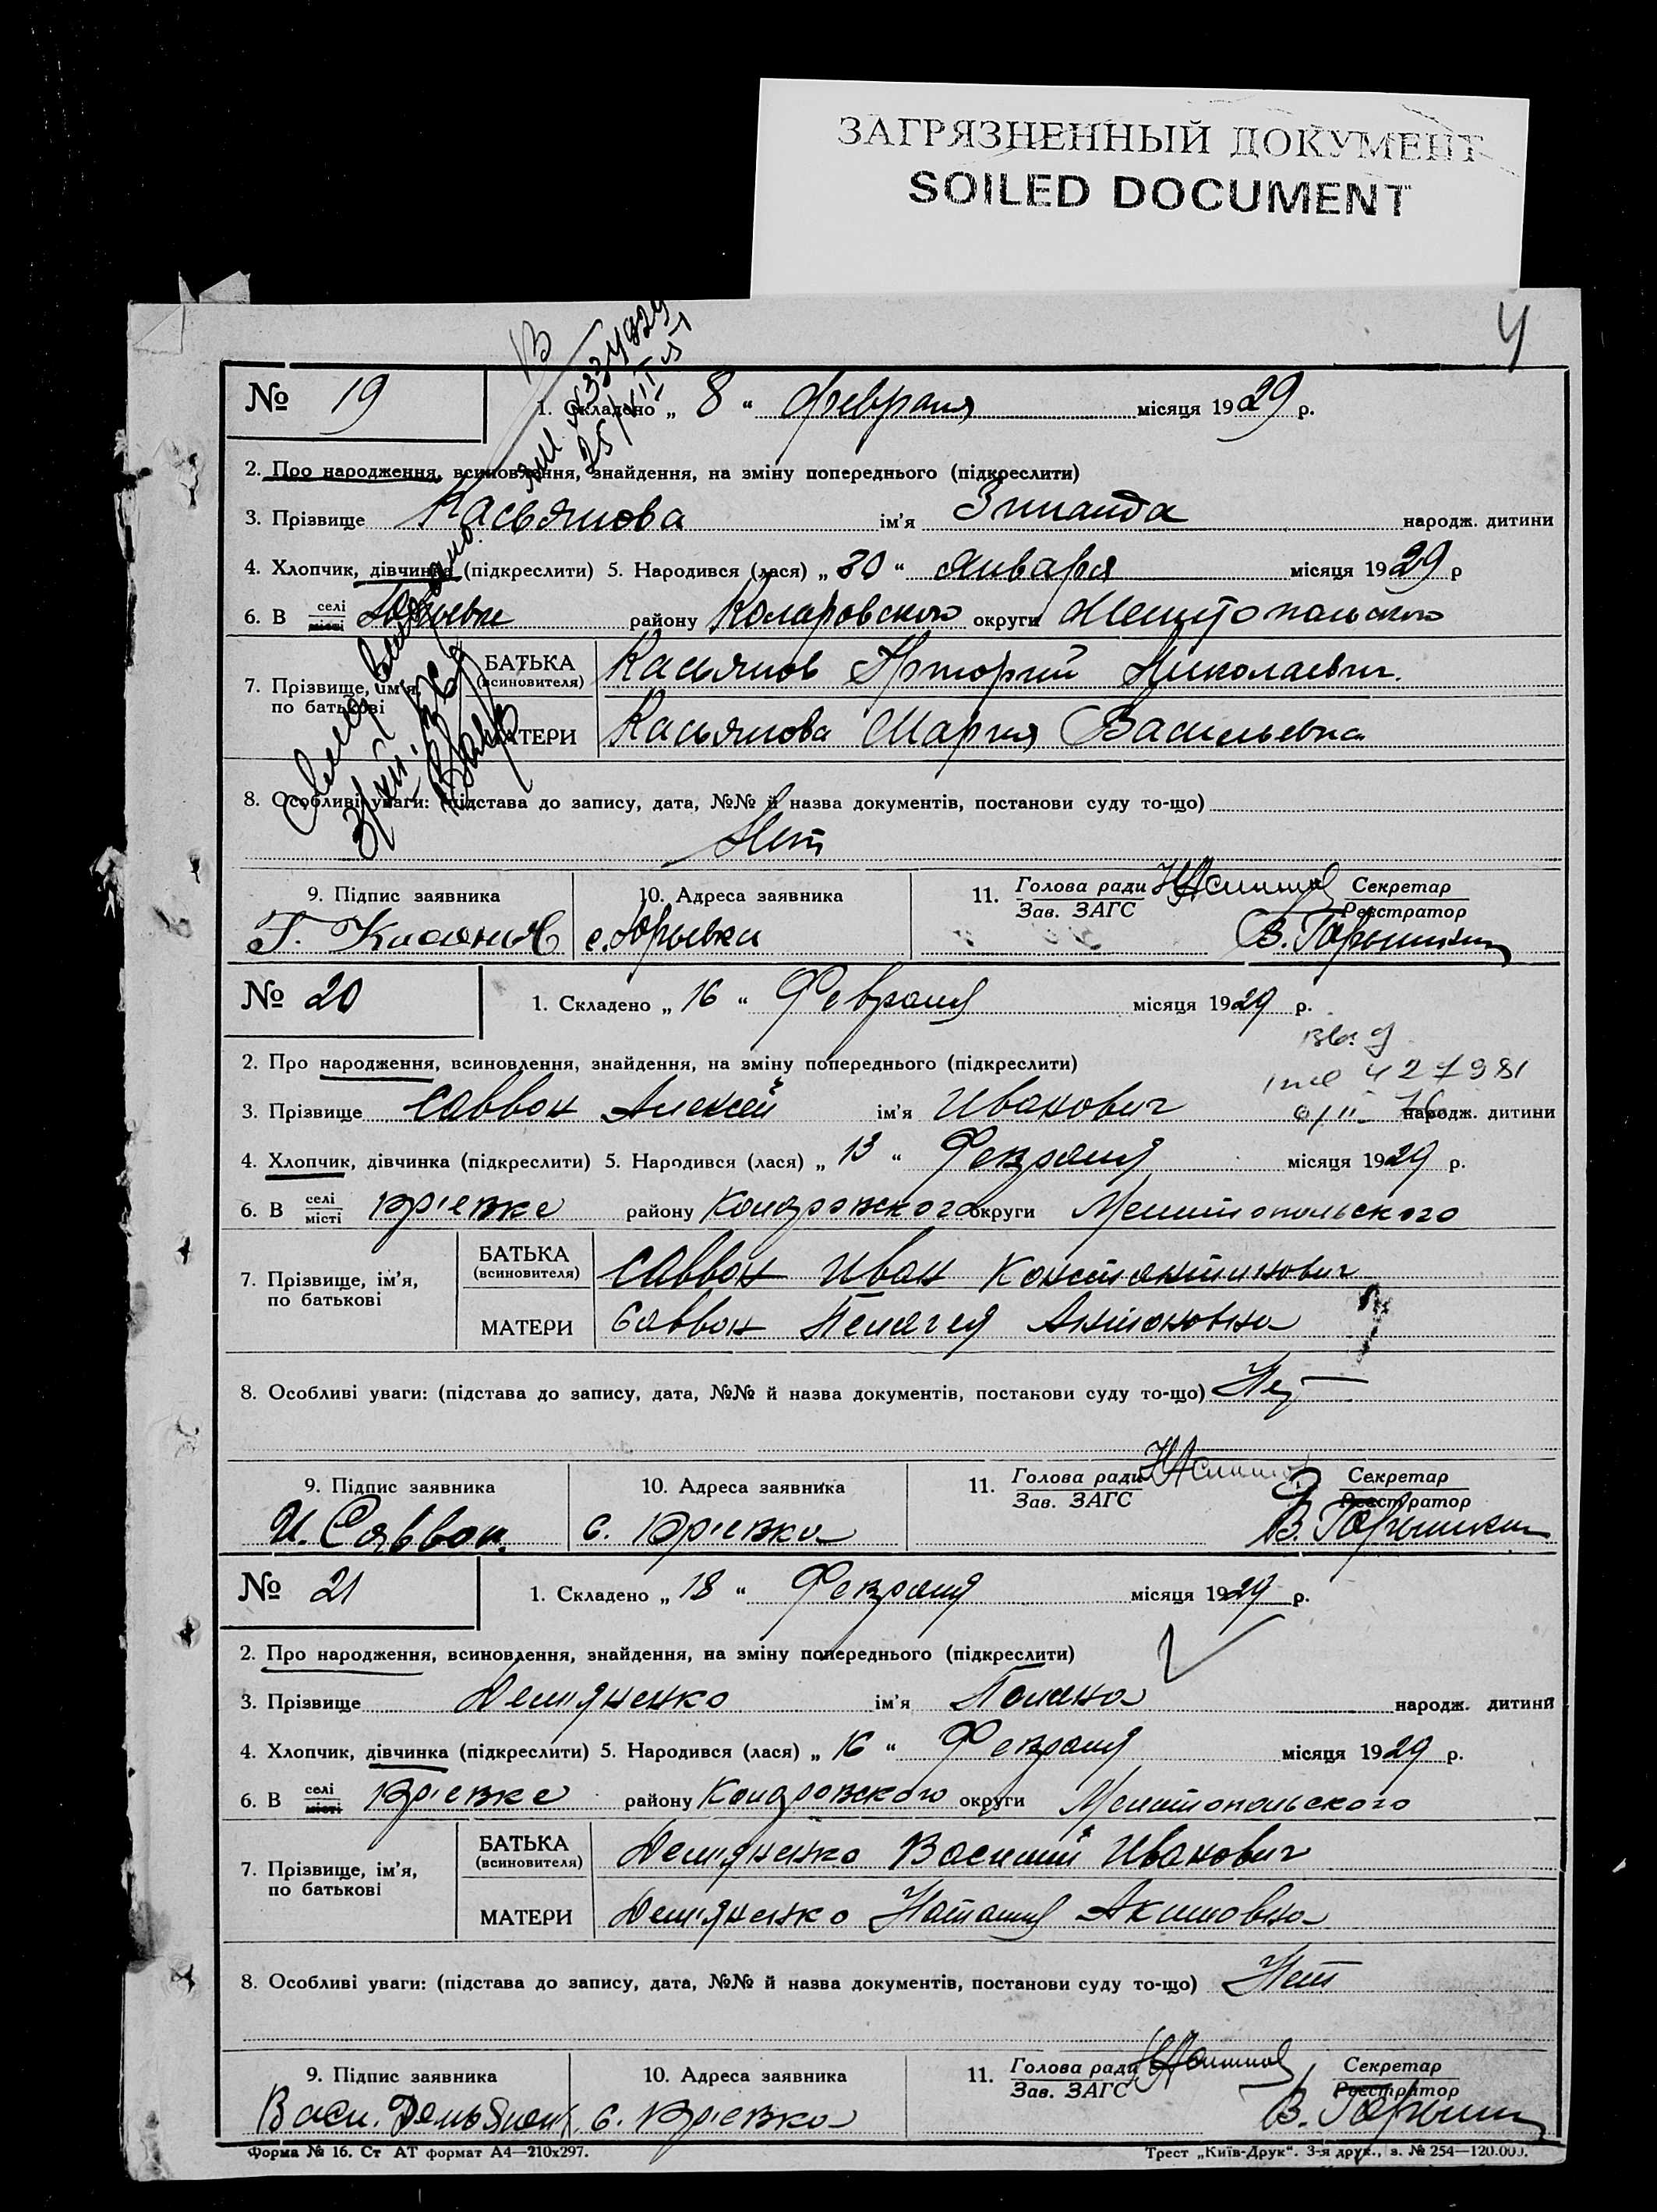 ЗАГРЯЗНЕННЫЙ ДОКУМЕНТ
SOILED DOCUMENT
4
№ 19
1. Складено „ 8 “ февраля місяця 1929 р.
2. Про народження, всиновлення, знайдення, на зміну попереднього (підкреслити)
3. Прізвище Касьянова ім'я Зинаида народж. дитини
4. Хлопчик, дівчинка (підкреслити) 5. Народився (лася) „ 30 “ января місяця 1929 р
6. В селі місті Юрьевке району Коларовского округи Мелитопольского
7. Прізвище, ім'я, по батькові
БАТЬКА (всиновителя) Касьянов Григорий Николаевич.
МАТЕРИ Касьянова Мария Васильевна
8. Особливі уваги: (підстава до запису, дата, №№ й назва документів, постанови суду то-що)
Нет
9. Підпис заявника 10. Адреса заявника 11. Голова ради Секретар
Зав. ЗАГС Реєстратор
с. Юрьевка
№ 20
1. Складено „ 16 “ Февраля місяця 1929 р.
2. Про народження, всиновлення, знайдення, на зміну попереднього (підкреслити)
427981
3. Прізвище Саввон Алексей ім'я Иванович народж. дитини
4. Хлопчик, дівчинка (підкреслити) 5. Народився (лася) „ 13 “ Февраля місяця 1929 р.
6. В селі місті Юрʼевке району Коларовского округи Мелитопольского
7. Прізвище, ім'я, по батькові
БАТЬКА (всиновителя) Саввон Иван Константинович
МАТЕРИ Саввон Пелагея Антоновна
8. Особливі уваги: (підстава до запису, дата, №№ й назва документів, постанови суду то-що) Нет
9. Підпис заявника 10. Адреса заявника 11. Голова ради Секретар
Зав. ЗАГС Реєстратор
И. Саввон. с. Юрʼевка
№ 21
1. Складено „ 18 “ Февраля місяця 1929 р.
2. Про народження, всиновлення, знайдення, на зміну попереднього (підкреслити)
3. Прізвище Демʼяненко ім'я Полина народж. дитини
4. Хлопчик, дівчинка (підкреслити) 5. Народився (лася) „ 16 “ Февраля місяця 1929 р.
6. В селі місті Юрʼевке району Коларовского округи Мелитопольского
7. Прізвище, ім'я, по батькові
БАТЬКА (всиновителя) Демʼяненко Василий Иванович
МАТЕРИ Демʼяненко Наталия Акимовна
8. Особливі уваги: (підстава до запису, дата, №№ й назва документів, постанови суду то-що) Нет
9. Підпис заявника 10. Адреса заявника 11. Голова ради Секретар
Зав. ЗАГС Реєстратор
с. Юрʼевка
Форма № 16. Ст АТ формат А4—210х297.
Трест „Київ-Друк“. 3-я друк., з. № 254—120.000.